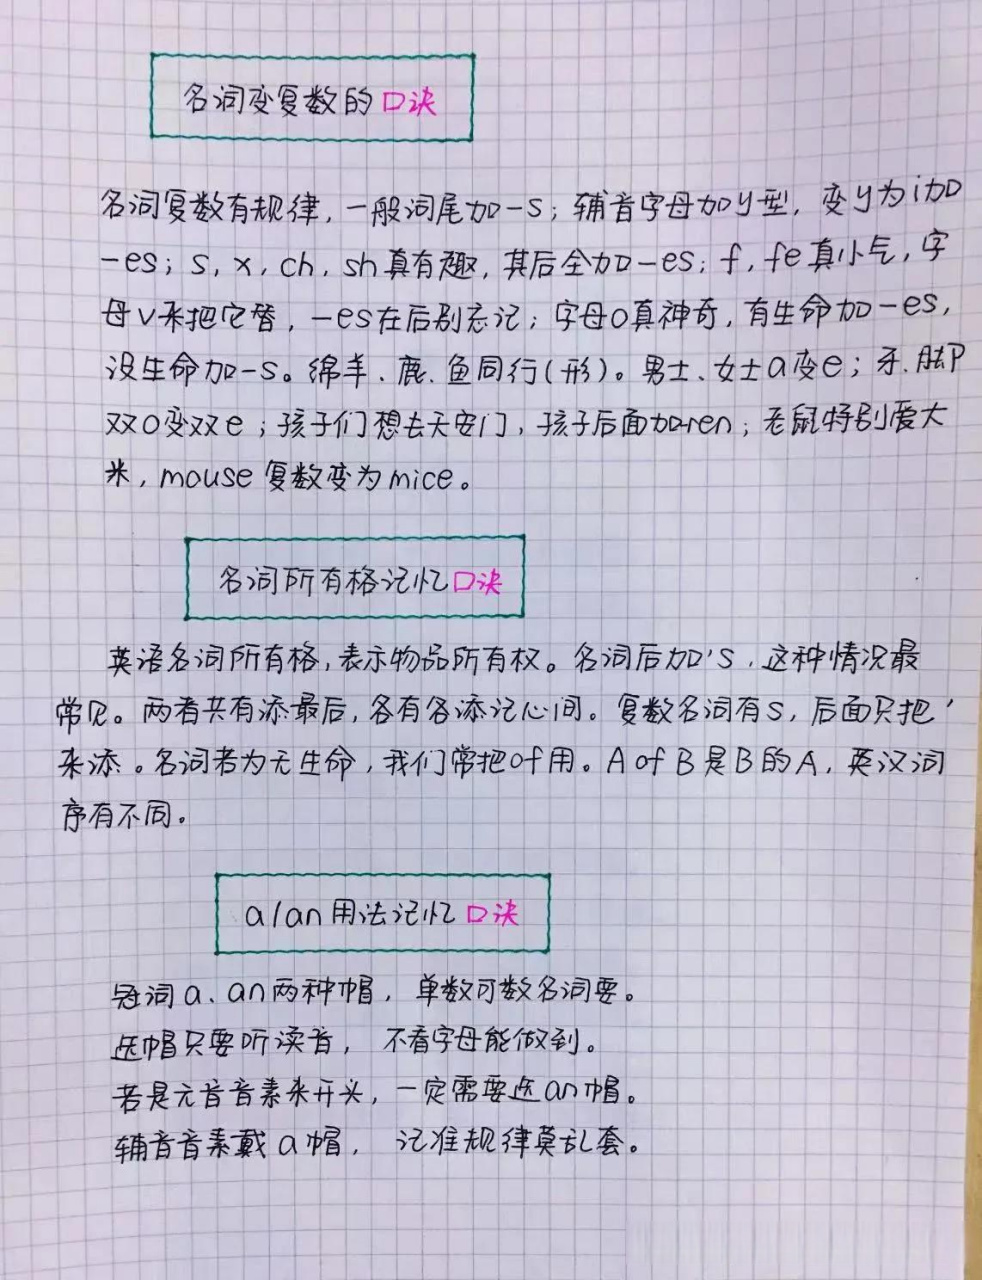 名词变复数的口诀
名词复数有规律，一般词尾加-s；辅音字母加y型，变y为i加
-es；s，x，ch，sh真有趣，其后全加-es；f，fe真小气，字
母v来把它替，-es在后别忘记；字母o真神奇，有生命加-es，
没生命加-s。绵羊、鹿、鱼同行(形)。男士、女士a变e；牙、脚
双o变双e；孩子们想去天安门，孩子后面加ren；老鼠特别爱大
米，mouse复数变为mice。
名词所有格记忆口诀
英语名词所有格，表示物品所有权。名词后加's，这种情况最
常见。两者共有添最后，各有各添记心间。复数名词有s，后面只把'
来添。名词若为无生命，我们常把of用。A of B是B的A，英汉词
序有不同。
a/an用法记忆口诀
冠词a、an两种帽，单数可数名词要。
选帽只要听读音，不看字母能做到。
若是元音音素来开头，一定需要选an帽。
辅音音素戴a帽，记准规律莫乱套。